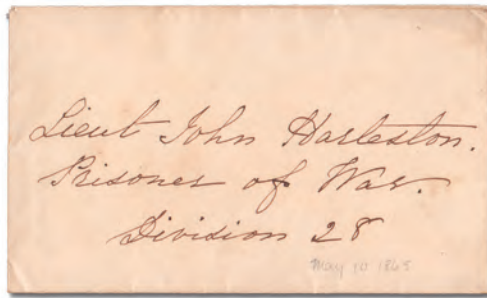 Lieut John Harleston.
Prisoner of War.
Division 28
May 10 1865